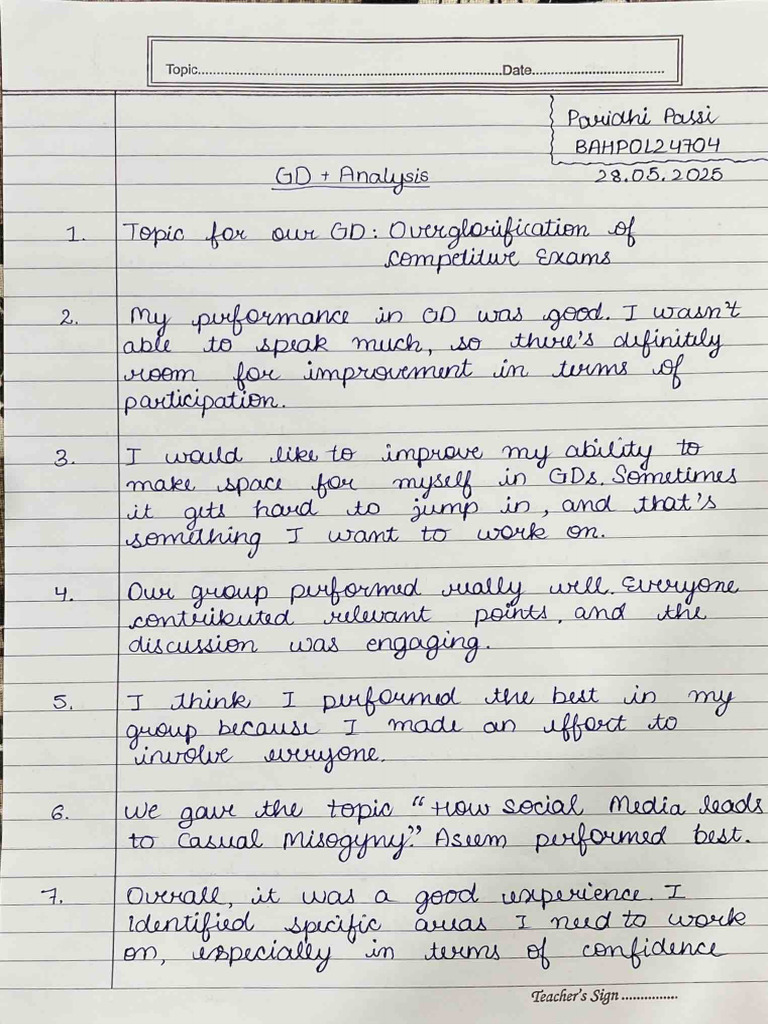 Topic..........................................................................................Date.......................................
Paridhi Passi
BAHPOL24704
GD + Analysis
28.05.2025
1. Topic for our GD: Overglorification of
Competitive Exams
2. My performance in GD was good. I wasn't
able to speak much, so there's definitely
room for improvement in terms of
participation.
3. I would like to improve my ability to
make space for myself in GDs. Sometimes
it gets hard to jump in, and that's
something I want to work on.
4. Our group performed really well. Everyone
contributed relevant points, and the
discussion was engaging.
5. I think I performed the best in my
group because I made an effort to
involve everyone.
6. We gave the topic "How Social Media leads
to Casual Misogyny." Aseem performed best.
7. Overall, it was a good experience. I
identified specific areas I need to work
on, especially in terms of confidence
Teacher's Sign ...............